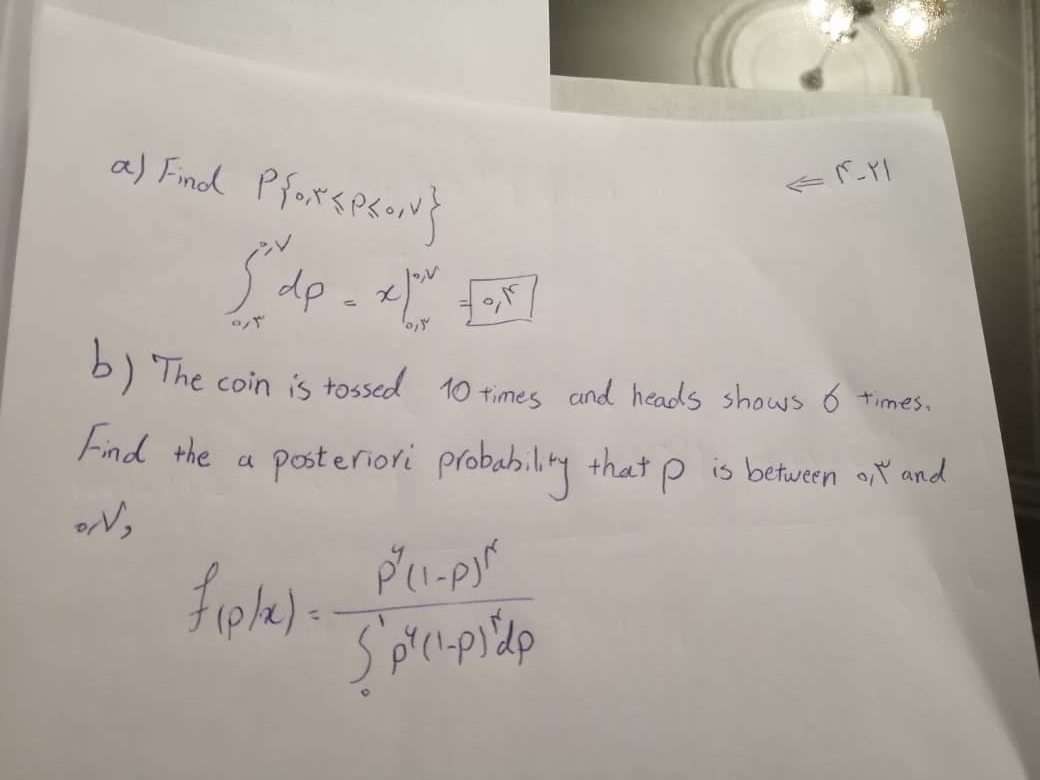 ۴-۲۱ ⇐
a) Find P{۰,۳≤P≤۰,۷}
∫_{۰,۳}^{۰,۷} dp = x|_{۰,۳}^{۰,۷} = ۰,۴
b) The coin is tossed 10 times and heads shows 6 times.
Find the a posteriori probability that p is between ۰,۳ and
۰,۷,
f(p/x) = p^۶(1-p)^۴ / ∫_۰^۱ p^۶(1-p)^۴dp